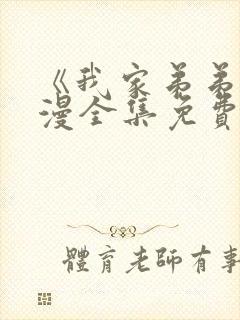 《我家弟弟
漫全集免費
體育老師有事